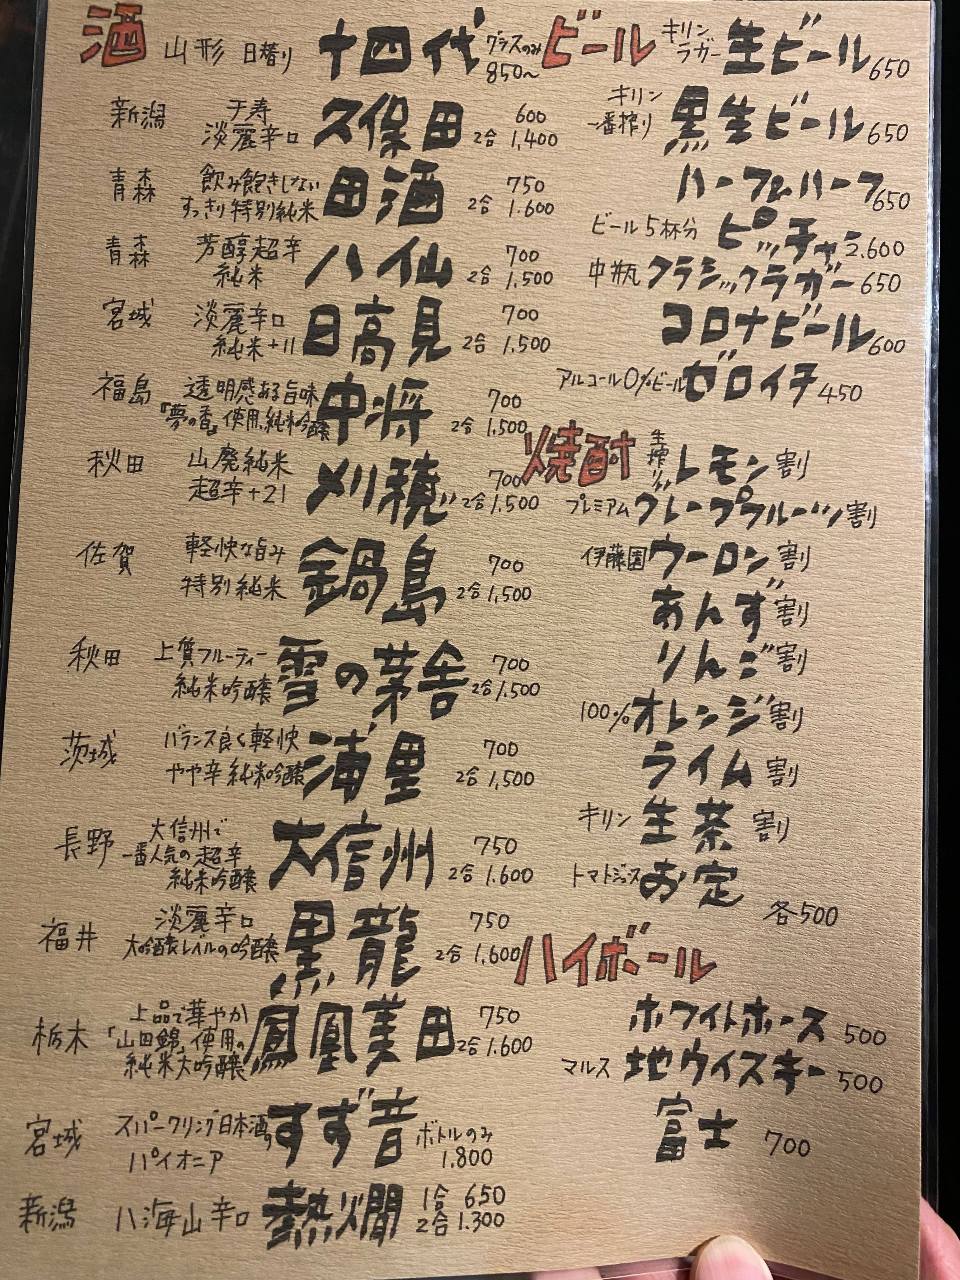 酒
山形 日替り 十四代 グラスのみ 850~
新潟 千寿 淡麗辛口 久保田 600 2合 1,400
青森 飲み飽きしない すっきり特別純米 田酒 750 2合 1.600
青森 芳醇超辛 純米 八仙 700 2合 1,500
宮城 淡麗辛口 純米+11 日高見 700 2合 1,500
福島 透明感ある旨味 「夢の香」使用、純米吟醸 中将 700 2合 1,500
秋田 山廃純米 超辛+21 刈穂 700 2合 1,500
佐賀 軽快な旨み 特別純米 鍋島 700 2合 1,500
秋田 上質フルーティー 純米吟醸 雪の茅舎 700 2合 1,500
茨城 バランス良く軽快 やや辛 純米吟醸 浦里 700 2合 1,500
長野 大信州で 一番人気の超辛 純米吟醸 大信州 750 2合 1.600
福井 淡麗辛口 大吟醸レベルの吟醸 黒龍 750 2合 1.600
栃木 上品で華やか 「山田錦」使用の 純米大吟醸 鳳凰美田 750 2合 1.600
宮城 スパークリング日本酒の パイオニア すず音 ボトルのみ 1.800
新潟 八海山 辛口 熱燗 1合 650 2合 1.300
ビール
キリン、ラガー 生ビール 650
キリン 一番搾り 黒生ビール 650
ハーフ&ハーフ 650
ビール5杯分 ピッチャー 2.600
中瓶 クラシックラガー 650
コロナビール 600
アルコール0%ビール ゼロイチ 450
焼酎
生搾り レモン割
プレミアム グレープフルーツ割
伊藤園 ウーロン割
あんず割
りんご割
100% オレンジ割
ライム割
キリン 生茶割
トマトジュース お定
各500
ハイボール
ホワイトホース 500
マルス 地ウイスキー 500
富士 700